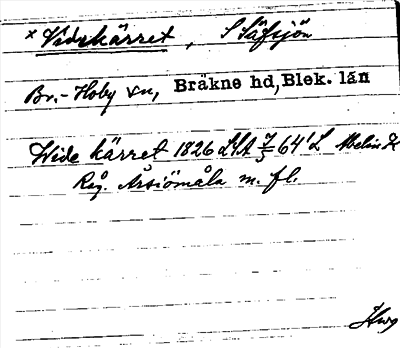 × Videkärret, S Säfsjön
Br.-Hoby sn, Bräkne hd, Blek. län
Wide kärret 1826 LSA 64' L
Reg. Årsiömåla m. fl.
Hwg